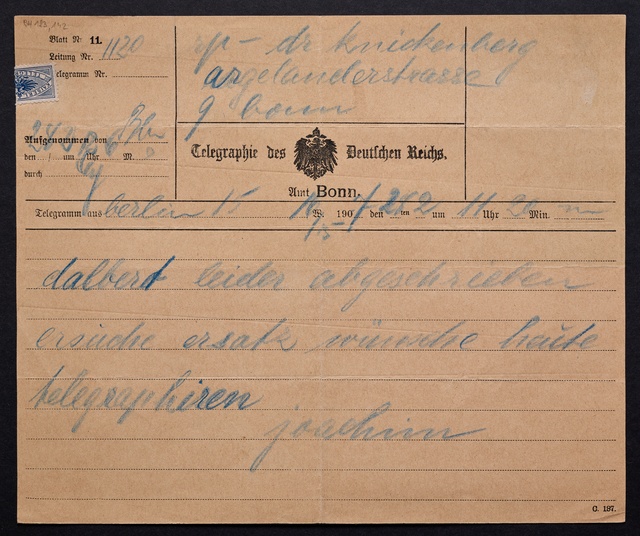 Blatt Nr. 11.
Leitung Nr. 1120
Telegramm Nr.
rp - dr knickenberg
argelanderstrasse
9 bonn
Aufgenommen von Bln
den 242 um Uhr M.
durch
Telegraphie des Deutschen Reichs.
Amt Bonn.
Telegramm aus berlin 15 W. 1907 den ten 2 um 11 Uhr 20 Min. m
dalbert leider abgeschrieben
ersuche ersatz wünsche heute
telegraphiren
joachim
C. 187.